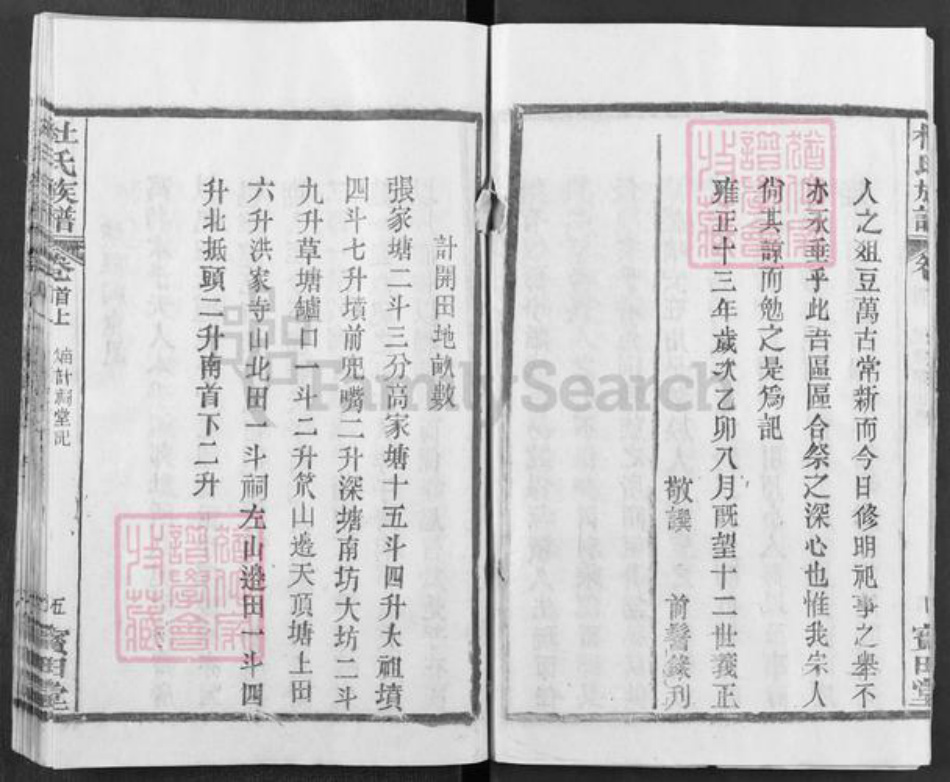 人之爼豆萬古常新而今日修明祀事之舉不
亦永垂乎此吾區區合祭之深心也惟我宗人
尙其諒而勉之是爲記
雍正十三年歲次乙卯八月旣望十二世義正
敬譔　前譽錄刋
計開田地畝數
張家塘二斗三分高家塘十五斗四升太祖墳
四斗七升墳前兜嘴二升深塘南坊大坊二斗
九升草塘鑪口一斗二升山邉天頂塘上田
六升洪家寺山北田一斗祠左山邉田一斗四
升北抵頭二升南首下二升
杜氏族譜
卷首上
祠堂記
五
寳田堂
寳田堂
譜學會
收藏
譜學會
收藏
FamilySearch